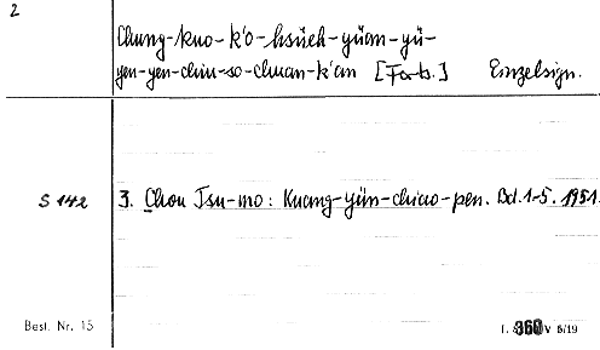 2
Chung-kuo-k'o-hsüeh-yüan-yü-
yen-yen-chiu-so-chuan-k'an [Forts.] Einzelsign.
S 142 3. Chou Tsu-mo: Kuang-yün-chiao-pen. Bd. 1-5. 1951.
Best. Nr. 15